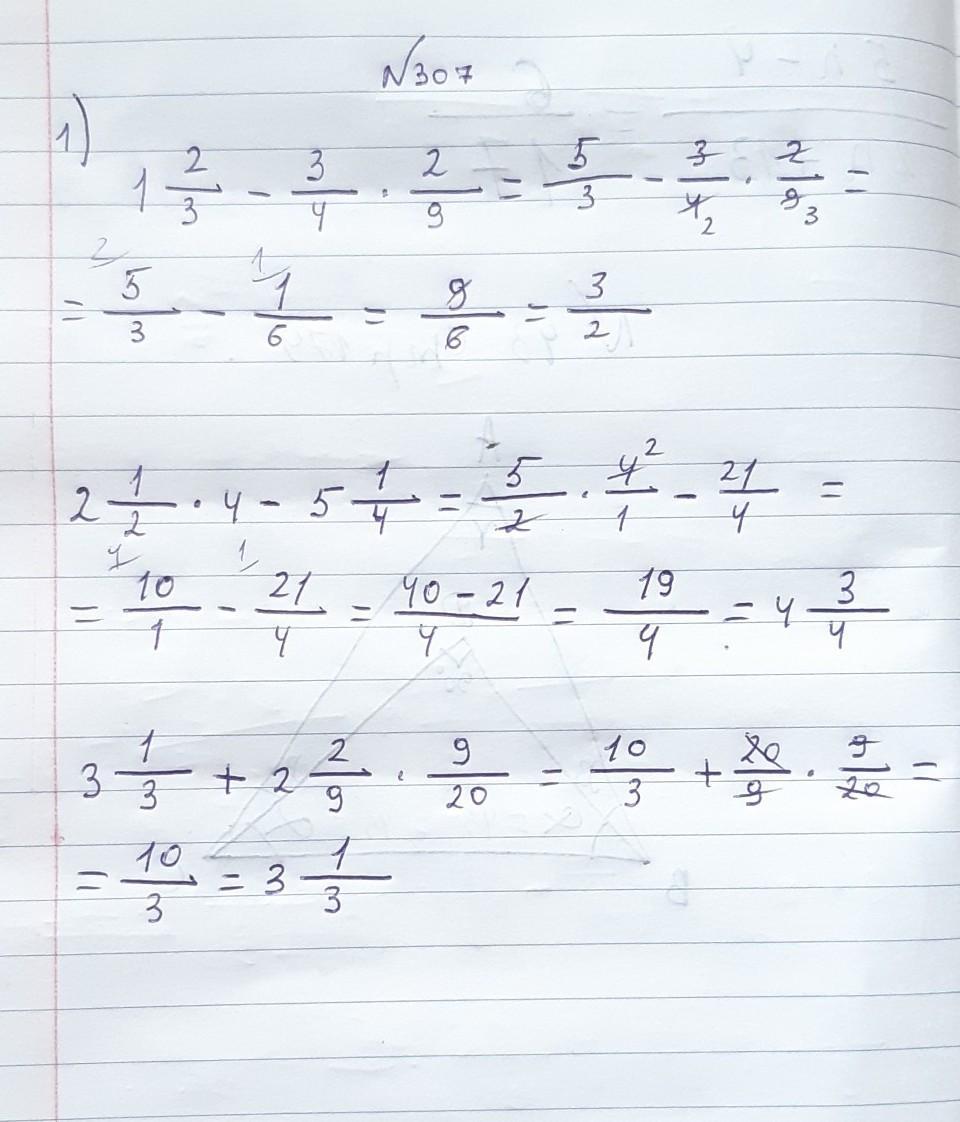 №307
1)
1 2/3 - 3/4 · 2/9 = 5/3 - 3/4 2 · 2/9 3 =
= 2 5/3 - 1 1/6 = 9/6 = 3/2
2 1/2 · 4 - 5 1/4 = 5/2 · 4 2/1 - 21/4 =
= 4 10/1 - 1 21/4 = 40 - 21/4 = 19/4 = 4 3/4
3 1/3 + 2 2/9 · 9/20 = 10/3 + 20/9 · 9/20 =
= 10/3 = 3 1/3